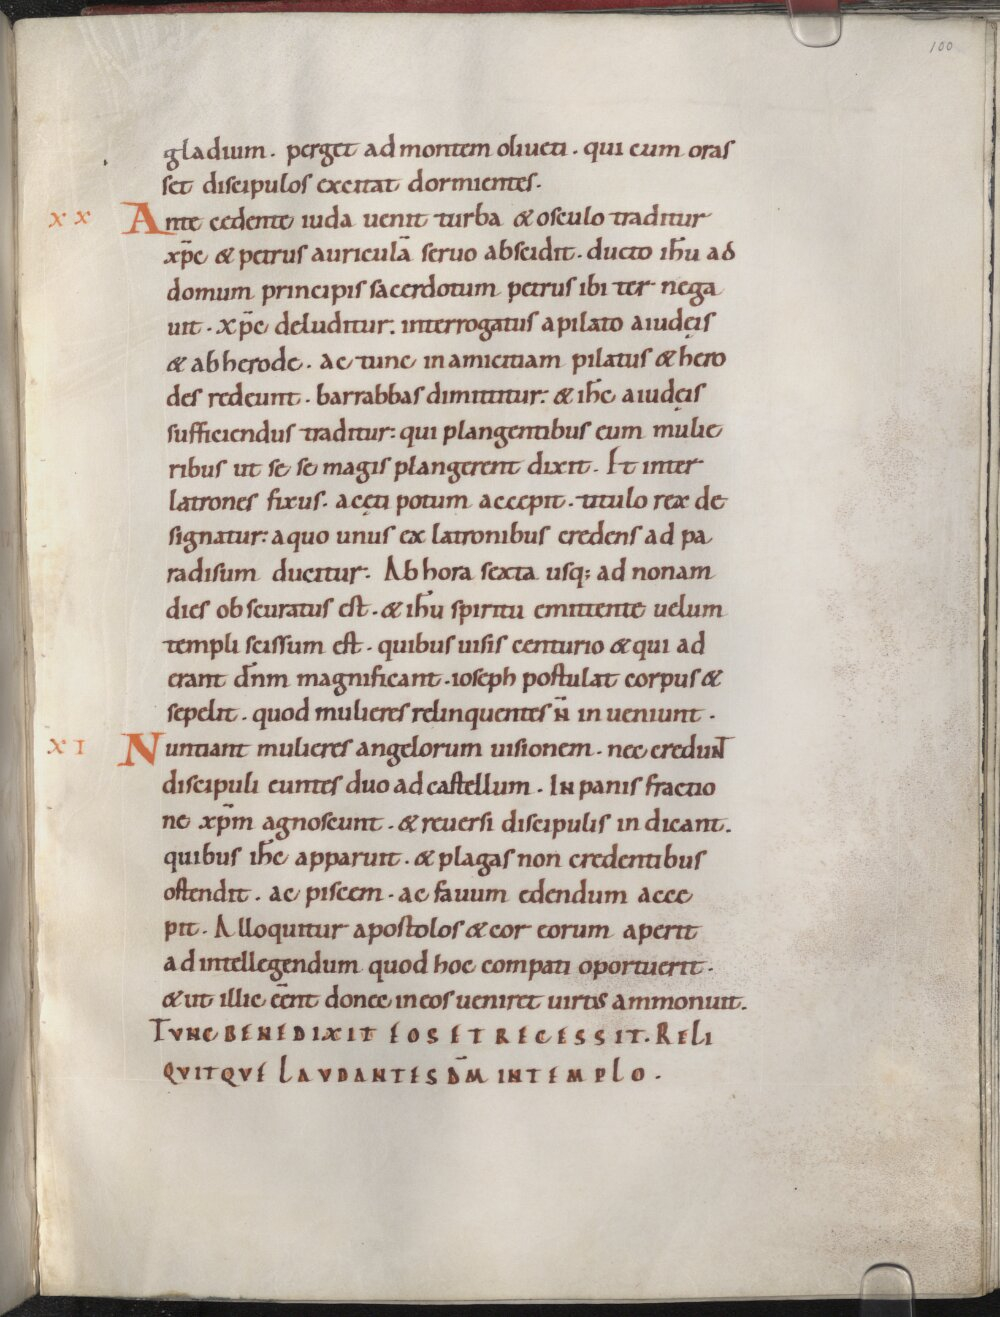 100
gladium. perget ad montem oliueti. qui cum oras
set discipulos excitat dormientes.
XX Ante cedente iuda uenit turba & osculo traditur
xp̄c & petrus auriculā seruo abscidit. ducto ih̄u ad
domum principis sacerdotum petrus ibi ter nega
uit. xp̄c deluditur: interrogatus a pilato a iudęis
& ab herode. ac tunc in amicitiam pilatus & hero
des redeunt. barrabbas dimittitur: & ih̄c a iudęis
sufficiendus traditur: qui plangentibus eum mulie
ribus ut se se magis plangerent dixit. Et inter
latrones fixus. acęti potum accepit. titulo rex de
signatur: a quo unus ex latronibus credens ad pa
radisum ducitur. Ab hora sexta usq; ad nonam
dies obscuratus est. & ih̄u spiritu emittente uelum
templi scissum est. quibus uisis centurio & qui ad
erant dn̄m magnificant. ioseph postulat corpus &
sepelit. quod mulieres relinquentes n̄ inueniunt.
XI Nuntiant mulieres angelorum uisionem. nec creduNT
discipuli euntes duo ad castellum. IN panis fractio
ne xp̄m agnoscunt. & reuersi discipulis indicant.
quibus ih̄c apparuit. & plagas non credentibus
ostendit. ac piscem. ac fauum edendum acce
pit. Alloquitur apostolos & cor eorum aperit
ad intellegendum quod hoc compati oportuerit.
& ut illic eēnt donec in eos ueniret uirtus ammonuit.
TUNC BENEDIXIT EOS ET RECESSIT. RELI
QUITQUE LAUDANTES DM̄ IN TEMPLO.